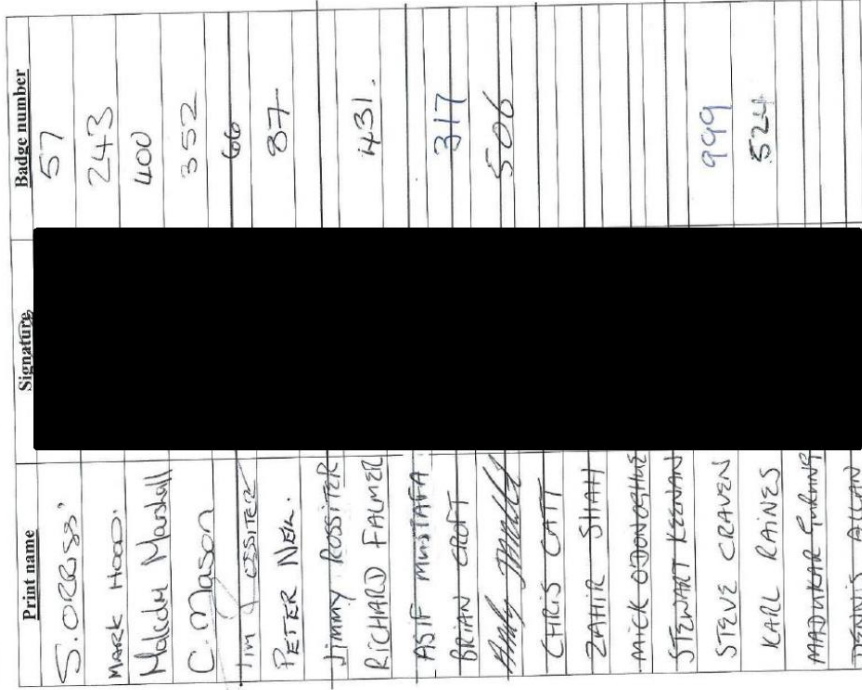 Print name Signature Badge number
S. ORRISS. 57
MARK HOOD. 243
Malcolm Marshall 400
C. Mason 352
Tim ROSSITER 66
PETER NEIL. 87
Jimmy ROSSITER
RICHARD FALMER 431.
ASIF MUSTAFA
BRIAN CROFT 317
Andy 506
CHRIS CATT
ZAHIR SHAH
MICK O'DONOGHUE
STEWART KEENAN
STEVE CRAVEN 999
KARL RAINES 524
MADHUKAR GURUNG
DENNIS ALLAN